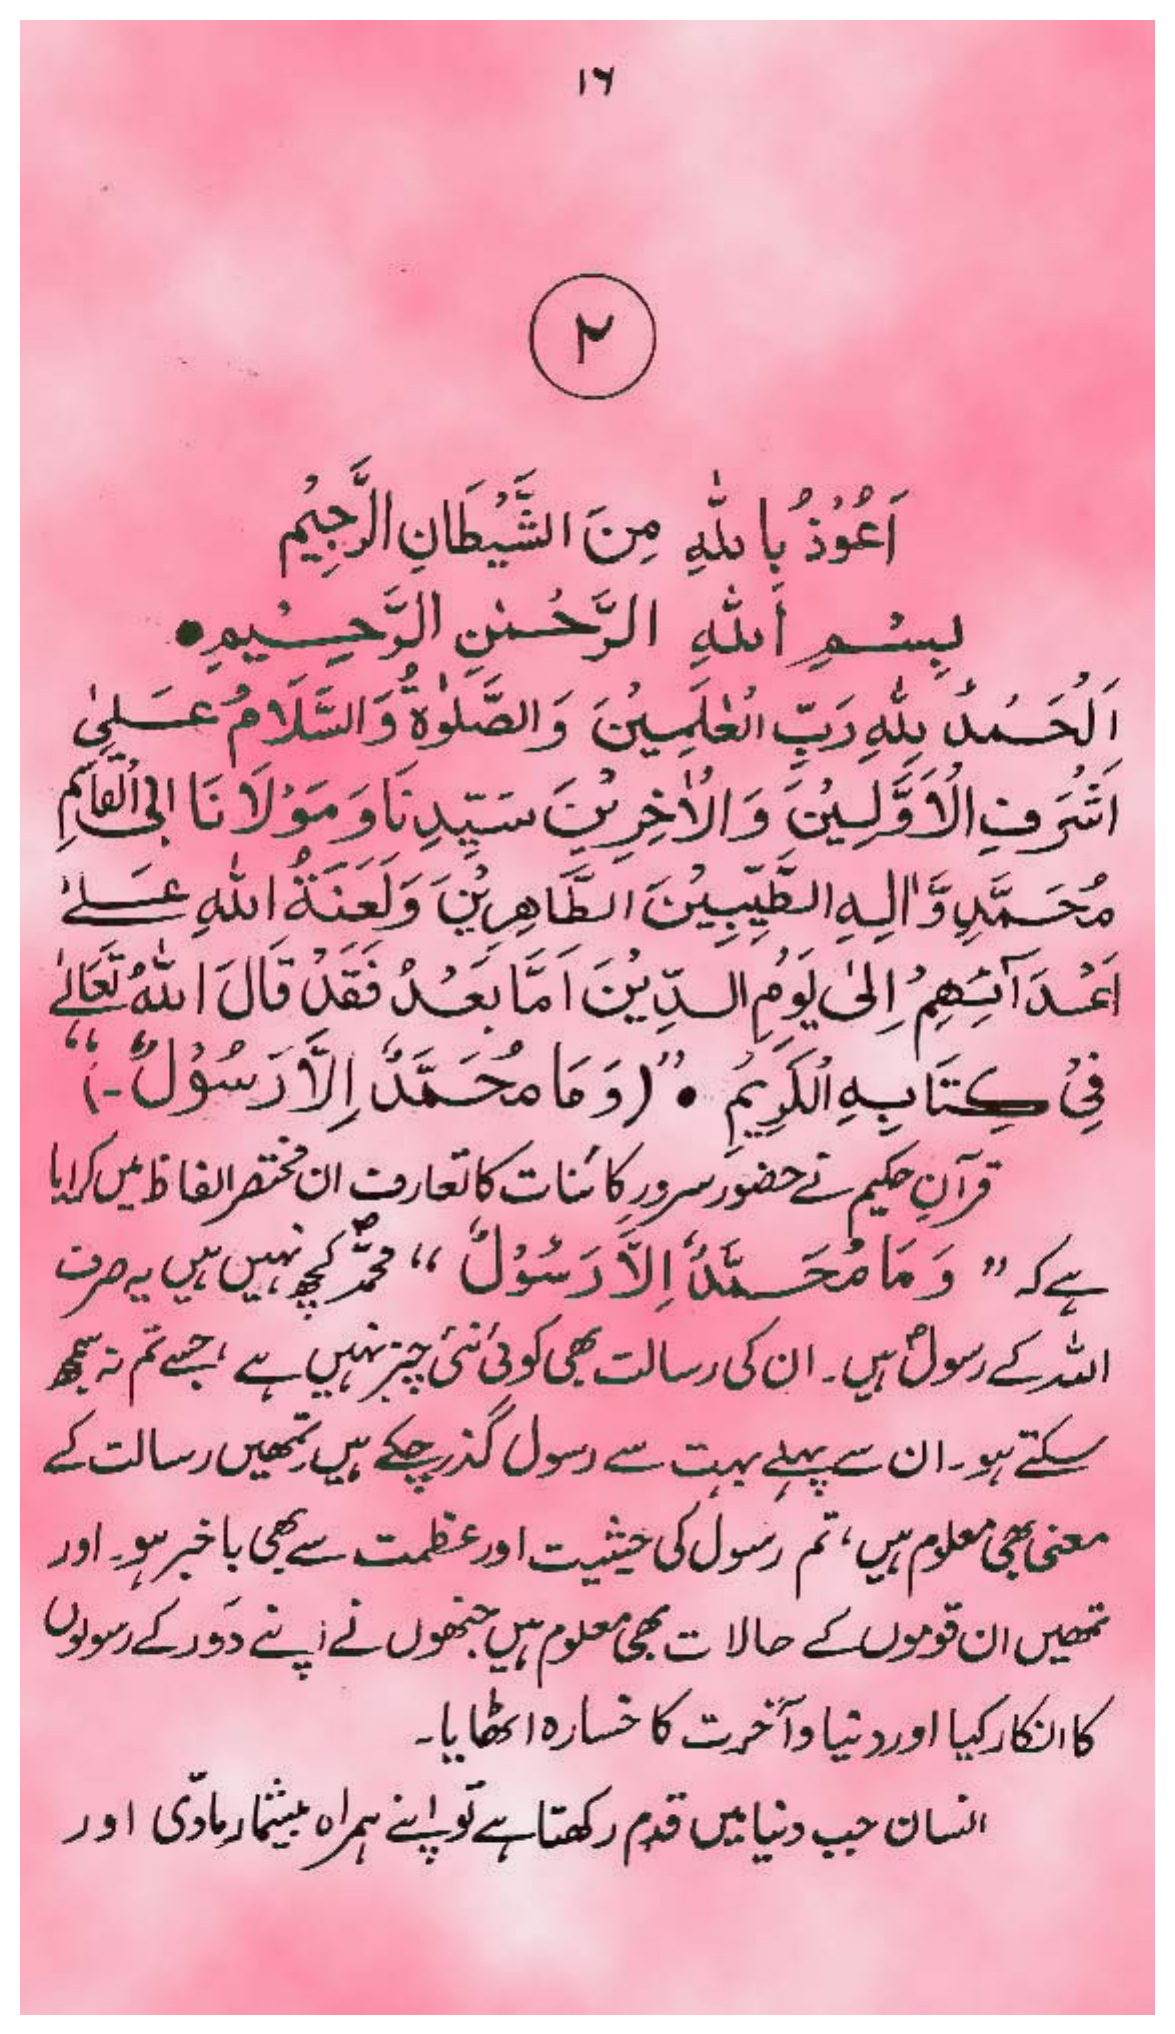 ۱۶
۲
اَعُوْذُ بِاللّٰهِ مِنَ الشَّيْطَانِ الرَّجِيْمِ
بِسْمِ اللّٰهِ الرَّحْمٰنِ الرَّحِيْمِ●
اَلْحَمْدُ لِلّٰهِ رَبِّ الْعٰلَمِيْنَ وَالصَّلٰوةُ وَالسَّلَامُ عَلٰى
اَشْرَفِ الْاَوَّلِيْنَ وَالْاٰخِرِيْنَ سَيِّدِنَا وَمَوْلَانَا اَبِى الْقَاسِمِ
مُحَمَّدٍ وَّاٰلِهِ الطَّيِّبِيْنَ الطَّاهِرِيْنَ وَلَعْنَةُ اللّٰهِ عَلٰے
اَعْدَآئِهِمْ اِلٰى يَوْمِ الدِّيْنَ اَمَّا بَعْدُ فَقَدْ قَالَ اللّٰهُ تَعَالٰے
فِيْ كِتَابِهِ الْكَرِيْمِ • ”(وَمَا مُحَمَّدٌ اِلَّا رَسُوْلٌ ۔)“
قرآنِ حکیم نے حضور سرورِ کائنات کا تعارف ان مختصر الفاظ میں کرایا
ہے کہ ” وَمَا مُحَمَّدٌ اِلَّا رَسُوْلٌ “ محمدؐ کچھ نہیں ہیں یہ صرف
اللہ کے رسولؐ ہیں۔ ان کی رسالت بھی کوئی نئی چیز نہیں ہے ، جسے تم نہ سمجھ
سکتے ہو۔ ان سے پہلے بہت سے رسول گذر چکے ہیں تمھیں رسالت کے
معنی بھی معلوم ہیں ، تم رسول کی حیثیت اور عظمت سے بھی باخبر ہو۔ اور
تمھیں ان قوموں کے حالات بھی معلوم ہیں جنھوں نے اپنے دَور کے رسولوں
کا انکار کیا اور دنیا و آخرت کا خسارہ اٹھایا۔
انسان جب دنیا میں قدم رکھتا ہے تو اپنے ہمراہ بیشمار مادّی اور